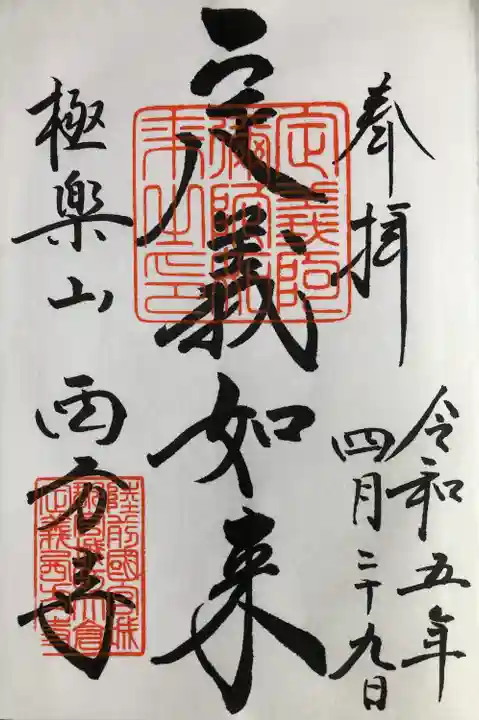 奉拝
令和五年
四月二十九日
定義如来
極楽山 西方寺